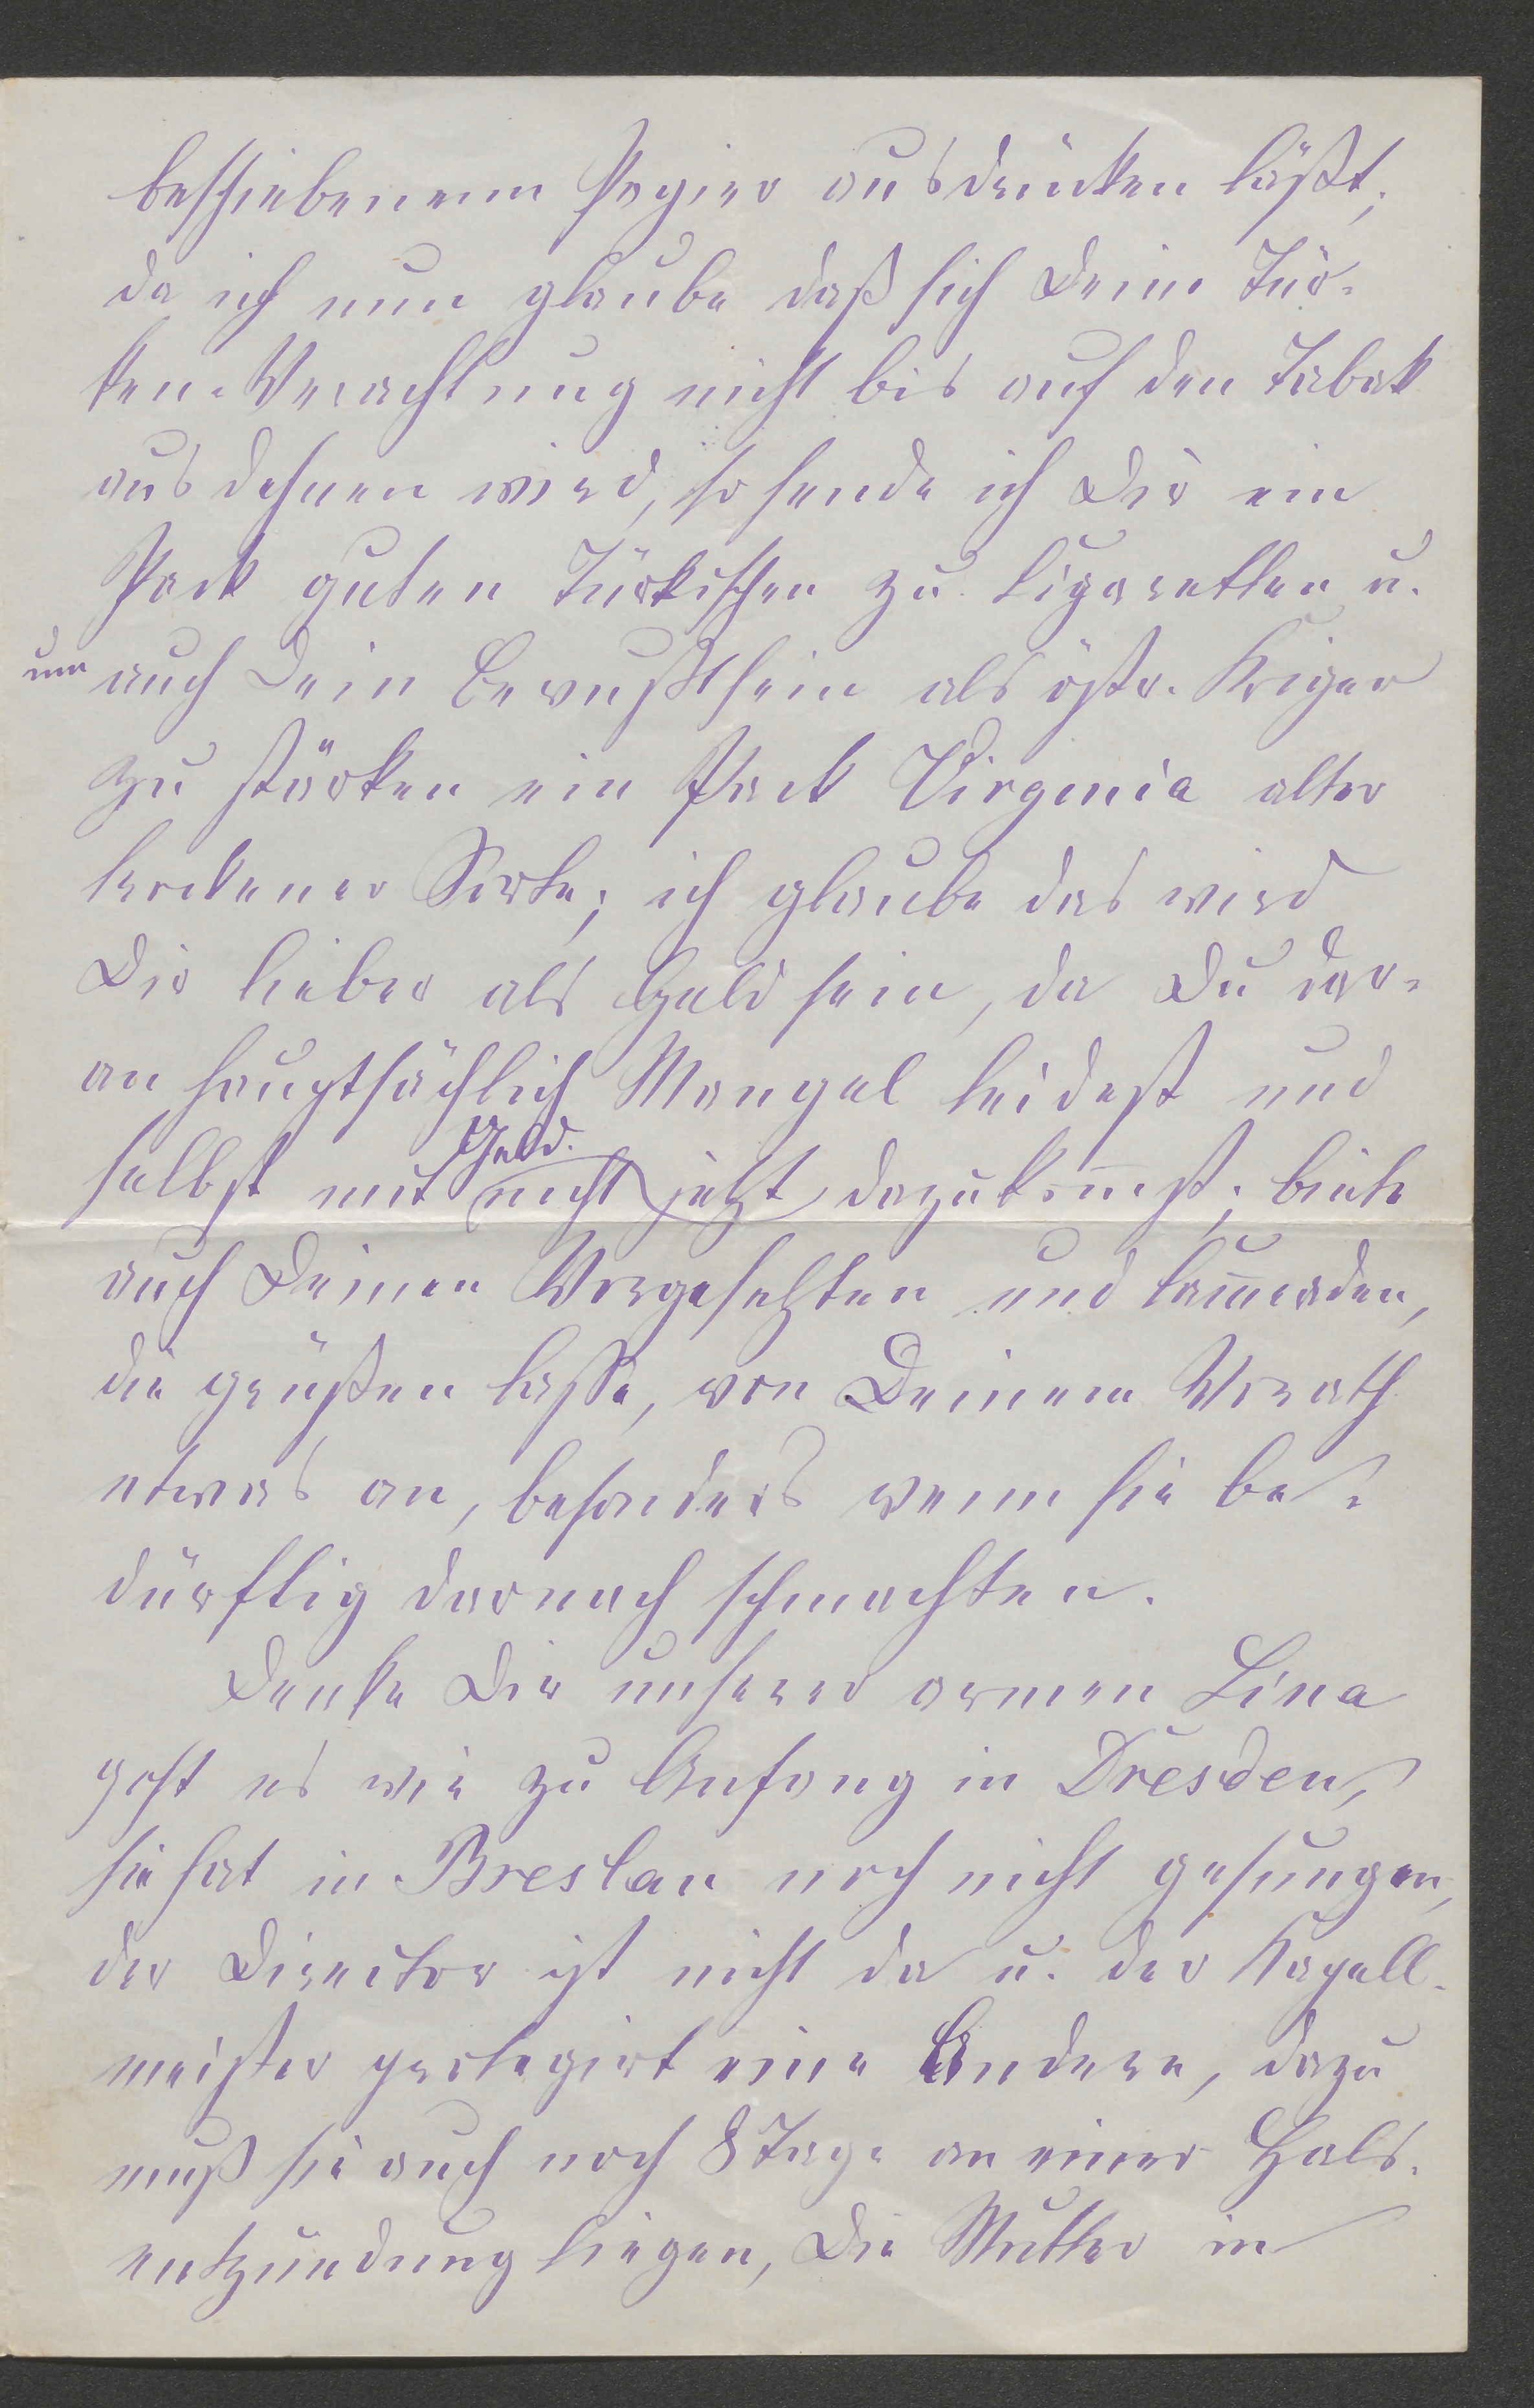 beschriebenem Papier ausdrücken läßt;
da ich nun glaube daß sich Deine Tür-
ken-Verachtung nicht bis auf den Tabak
ausdehnen wird, so sende ich Dir ein
Pack guten Türkischen zu Cigaretten u.
um auch Dein Bewußtsein als östr. Krieger
zu stärken ein Pack Virginia alter
trockener Sorte; ich glaube das wird
Dir lieber als Geld sein, da Du dar-
an hauptsächlich Mangel leidest und
Geld.
selbst mit nicht jetzt dazukom̅st; biete
auch Deinen Vorgesetzten und Cam̅eraden,
die grüßen lasse, von Deinem Vorath
etwas an, besonders wenn sie be-
dürftig darnach schmachten.
Denke Dir unserer armen Lina
geht es wie zu Anfang in Dresden,
sie hat in Breslau noch nicht gesungen,
der Director ist nicht da u. der Kapell-
meister protegirt eine Andere, dazu
muß sie auch noch 8 Tage an einer Hals-
entzündung liegen, die Mutter in